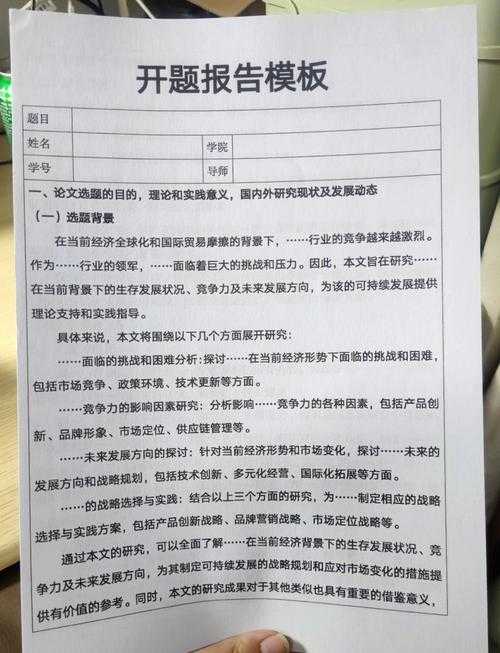 开题报告模板
题目
姓名 学院
学号 导师
一、论文选题的目的，理论和实践意义，国内外研究现状及发展动态
（一）选题背景
在当前经济全球化和国际贸易摩擦的背景下，……行业的竞争越来越激烈。
作为……行业的领军，……面临着巨大的挑战和压力。因此，本文旨在研究……
在当前背景下的生存发展状况、竞争力及未来发展方向，为该的可持续发展提供
理论支持和实践指导。
具体来说，本文将围绕以下几个方面展开研究：
……面临的挑战和困难分析：探讨……在当前经济形势下面临的挑战和困难，
包括市场竞争、政策环境、技术更新等方面。
……竞争力的影响因素研究：分析影响……竞争力的各种因素，包括产品创
新、品牌形象、市场定位、供应链管理等。
……未来发展方向的探讨：针对当前经济形势和市场变化，探讨……未来的
发展方向和战略规划，包括技术创新、多元化经营、国际化拓展等方面。
……的战略选择与实践：结合以上三个方面的研究，为……制定相应的战略
选择与实践方案，包括产品创新战略、品牌营销战略、市场定位战略等。
通过本文的研究，可以全面了解……在当前经济背景下的生存发展状况、竞
争力及未来发展方向，为其制定可持续发展的战略规划和应对市场变化的措施提
供有价值的参考。同时，本文的研究成果对于其他类似也具有重要的借鉴意义，